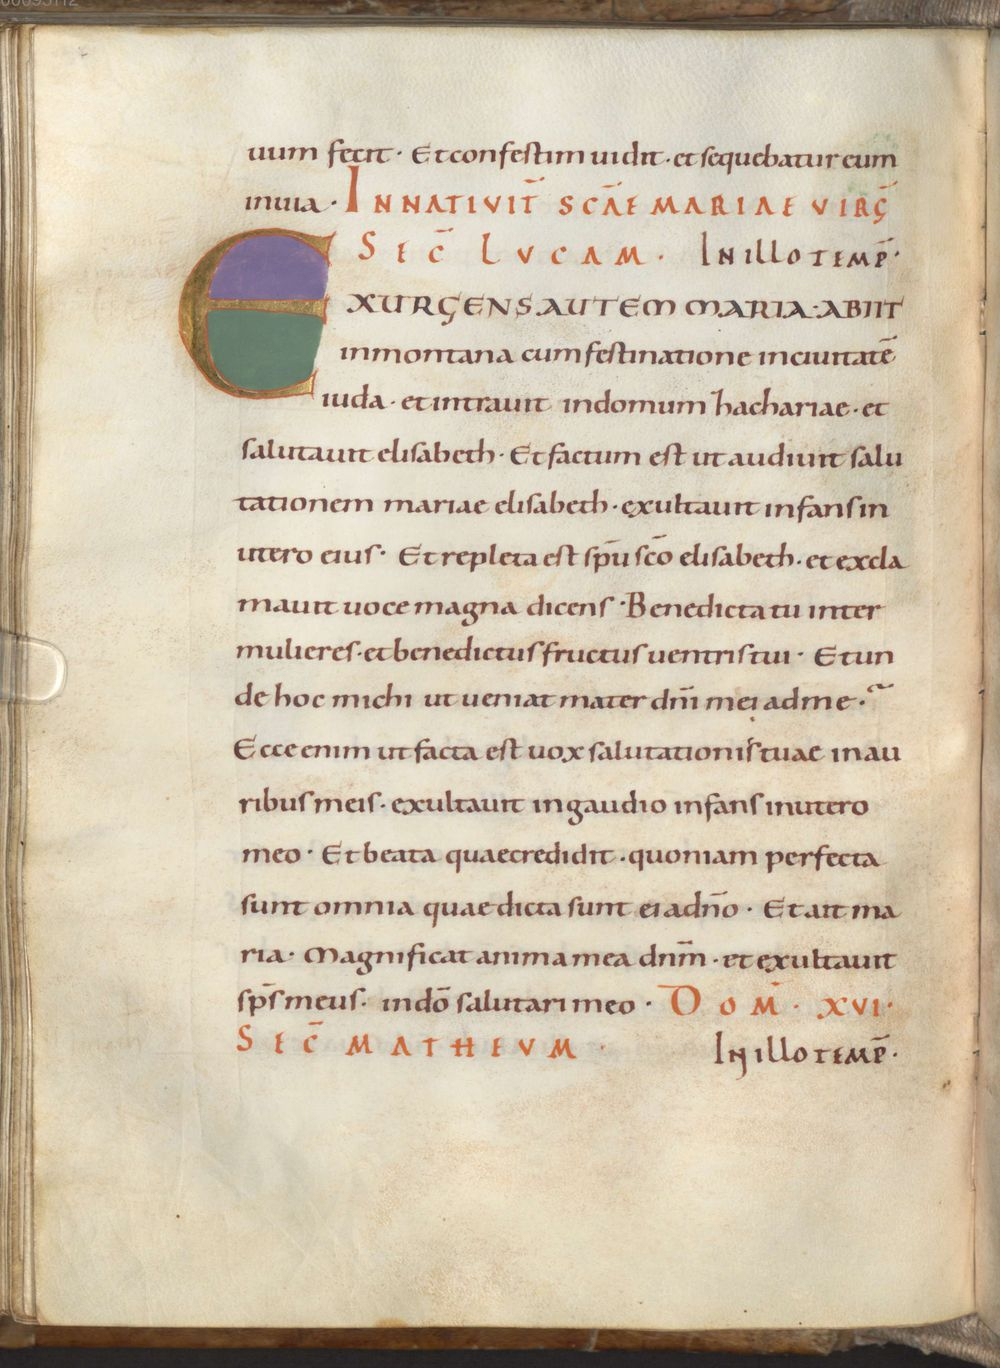 uum fecit · Et confestim uidit · et sequebatur eum
in uia · IN NATIVIT̄ SCAE MARIAE VIRḠ
SEC̄ LVCAM · IN ILLO TEMP̄ ·
EXURGENS AUTEM MARIA · ABIIT
in montana cum festinatione in ciuitatē
iuda · et intrauit in domum zhachariae · et
salutauit elisabeth · Et factum est ut audiuit salu
tationem mariae elisabeth · exultauit infans in
utero eius · Et repleta est sp̄u sc̄o elisabeth · et excla
mauit uoce magna dicens · Benedicta tu inter
mulieres · et benedictus fructus uentris tui · Et un
de hoc michi ut ueniat mater dn̄i mei ad me ·
Ecce enim ut facta est uox salutationis tuae in au
ribus meis · exultauit in gaudio infans in utero
meo · Et beata quae credidit · quoniam perfecta
sunt omnia quae dicta sunt ei a dn̄o · Et ait ma
ria · Magnificat anima mea dnm̄ · et exultauit
sp̄s meus · in dō salutari meo · DOM̄ · XVI ·
SEC̄ MATHEVM · IN ILLO TEMP̄ ·